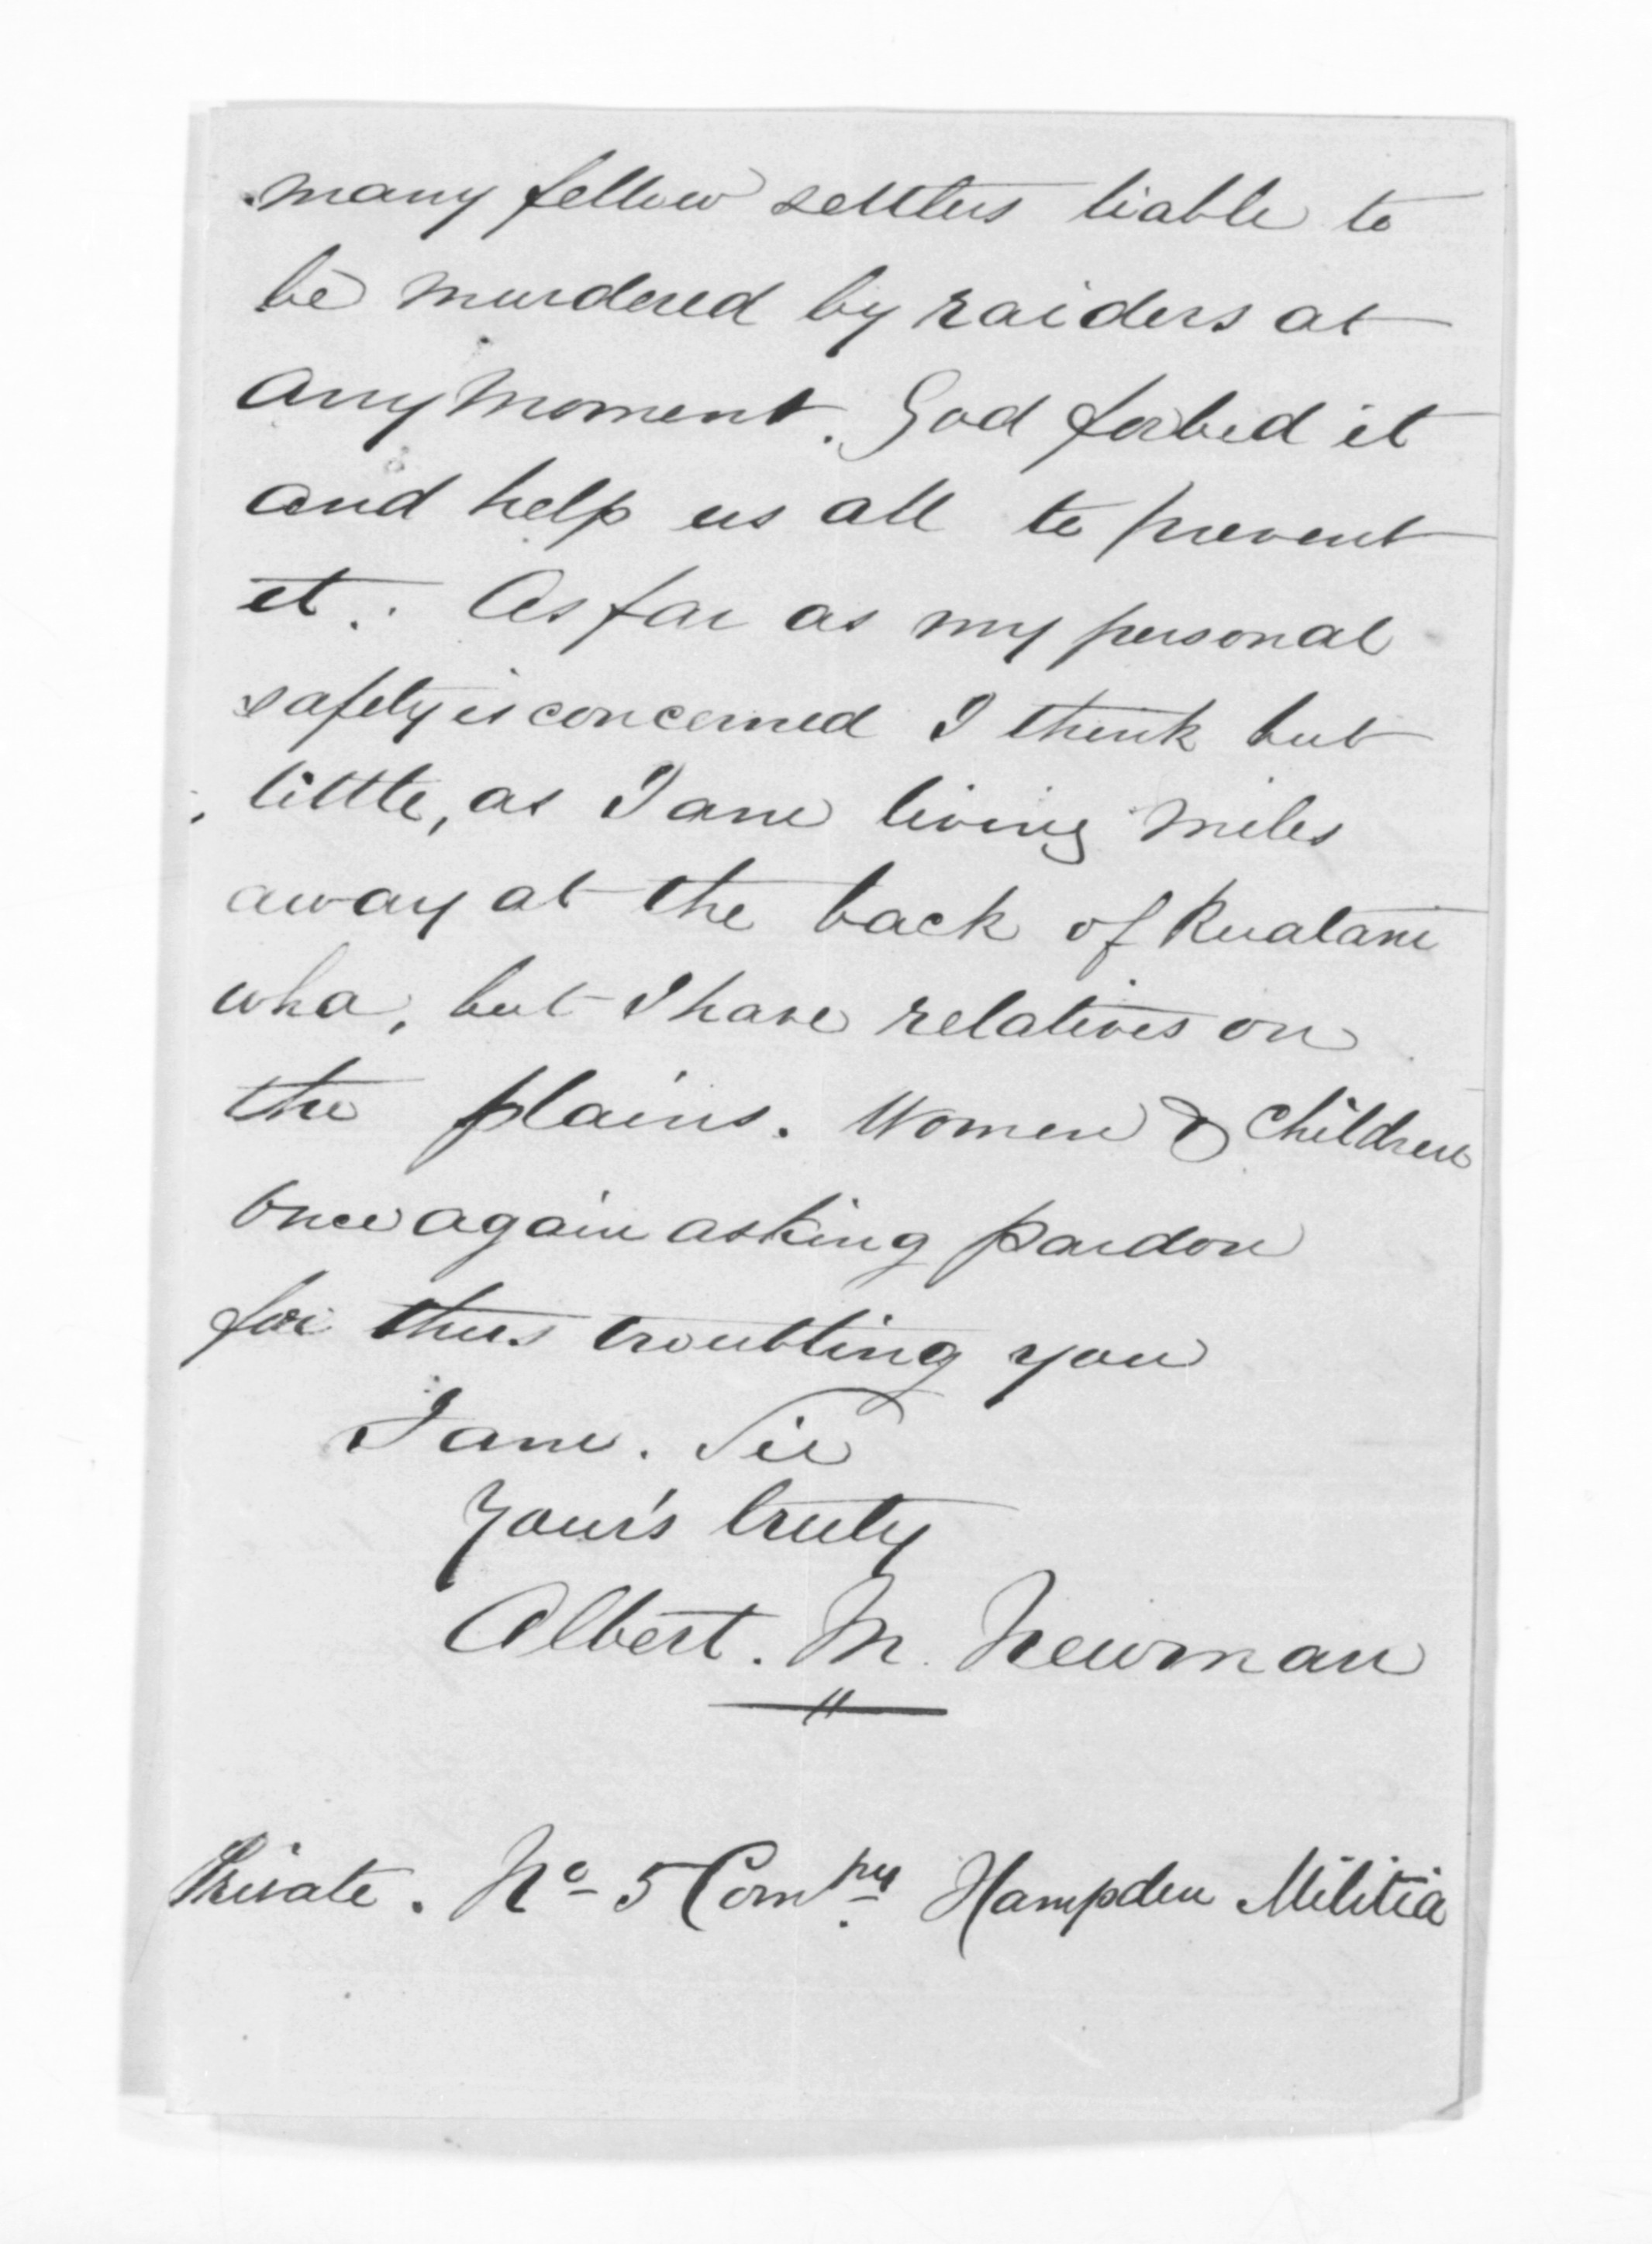 many fellow settlers liable to
be murdered by raiders at
any moment. God forbid it
and help us all to prevent
it. As far as my personal
safety is concerned I think but
little, as I am living miles
away at the back of Ruatani
wha, but I have relatives on
the plains. Women & Children
once again asking pardon
for thus troubling you
I am. Sir
Your's truly
Albert. M. Newman
Private. No 5 Compy Hampden Militia